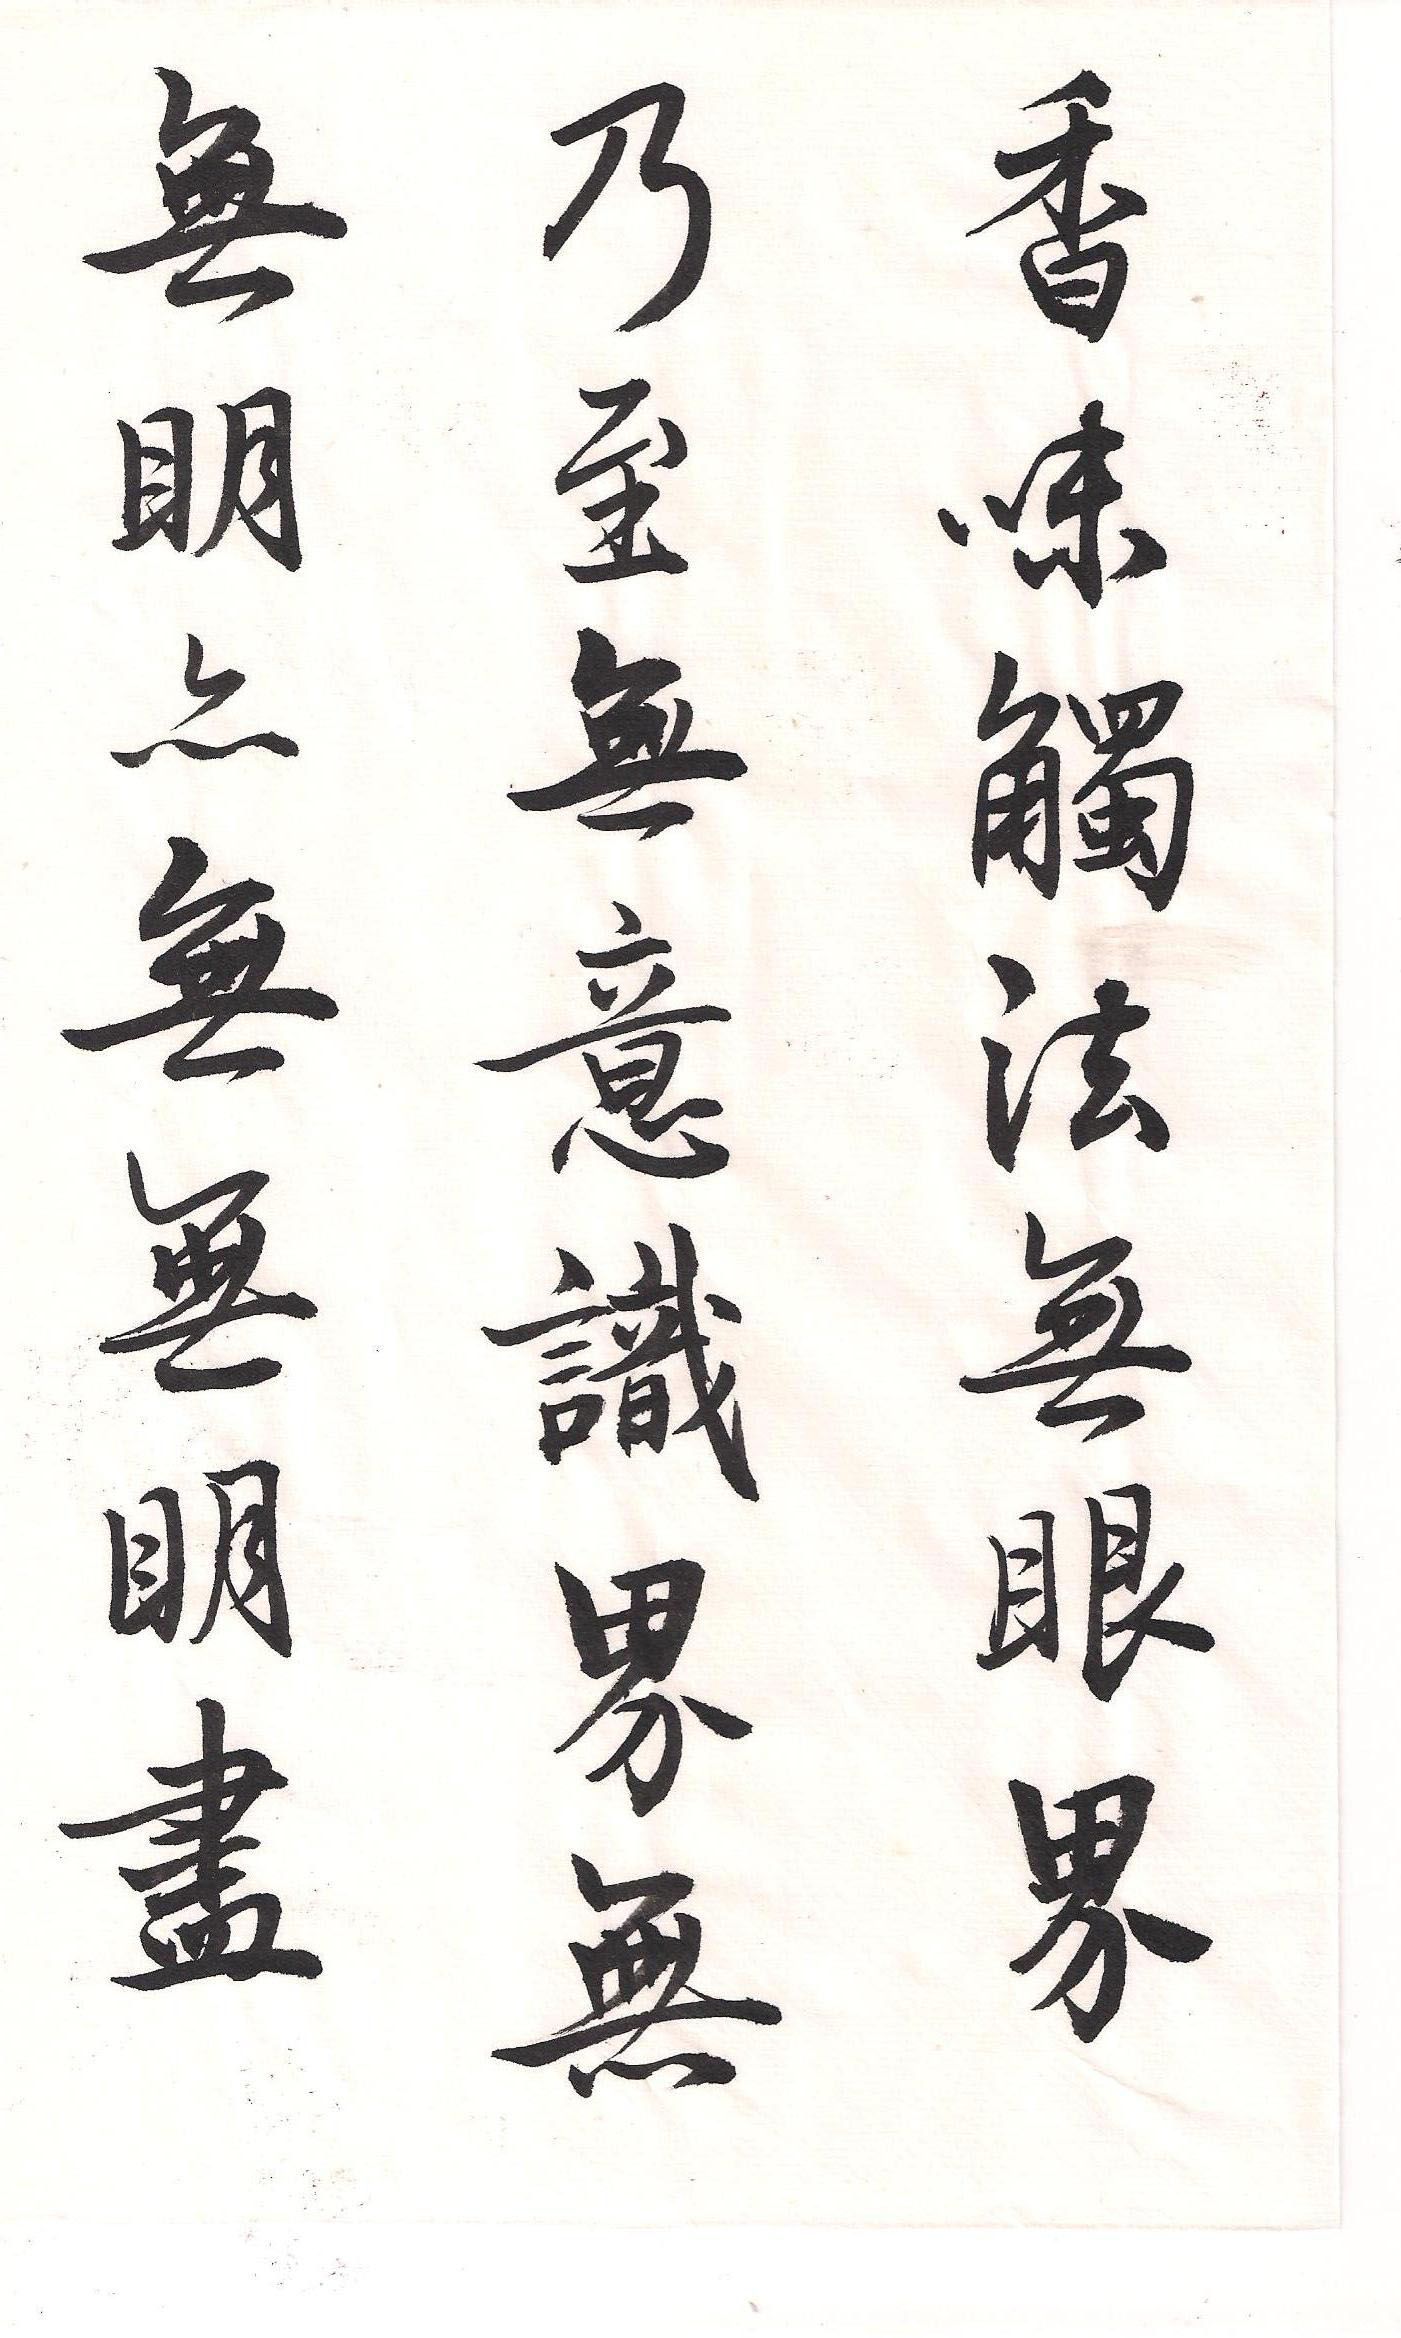 香味觸法無眼界
乃至無意識界無
無明亦無無明盡